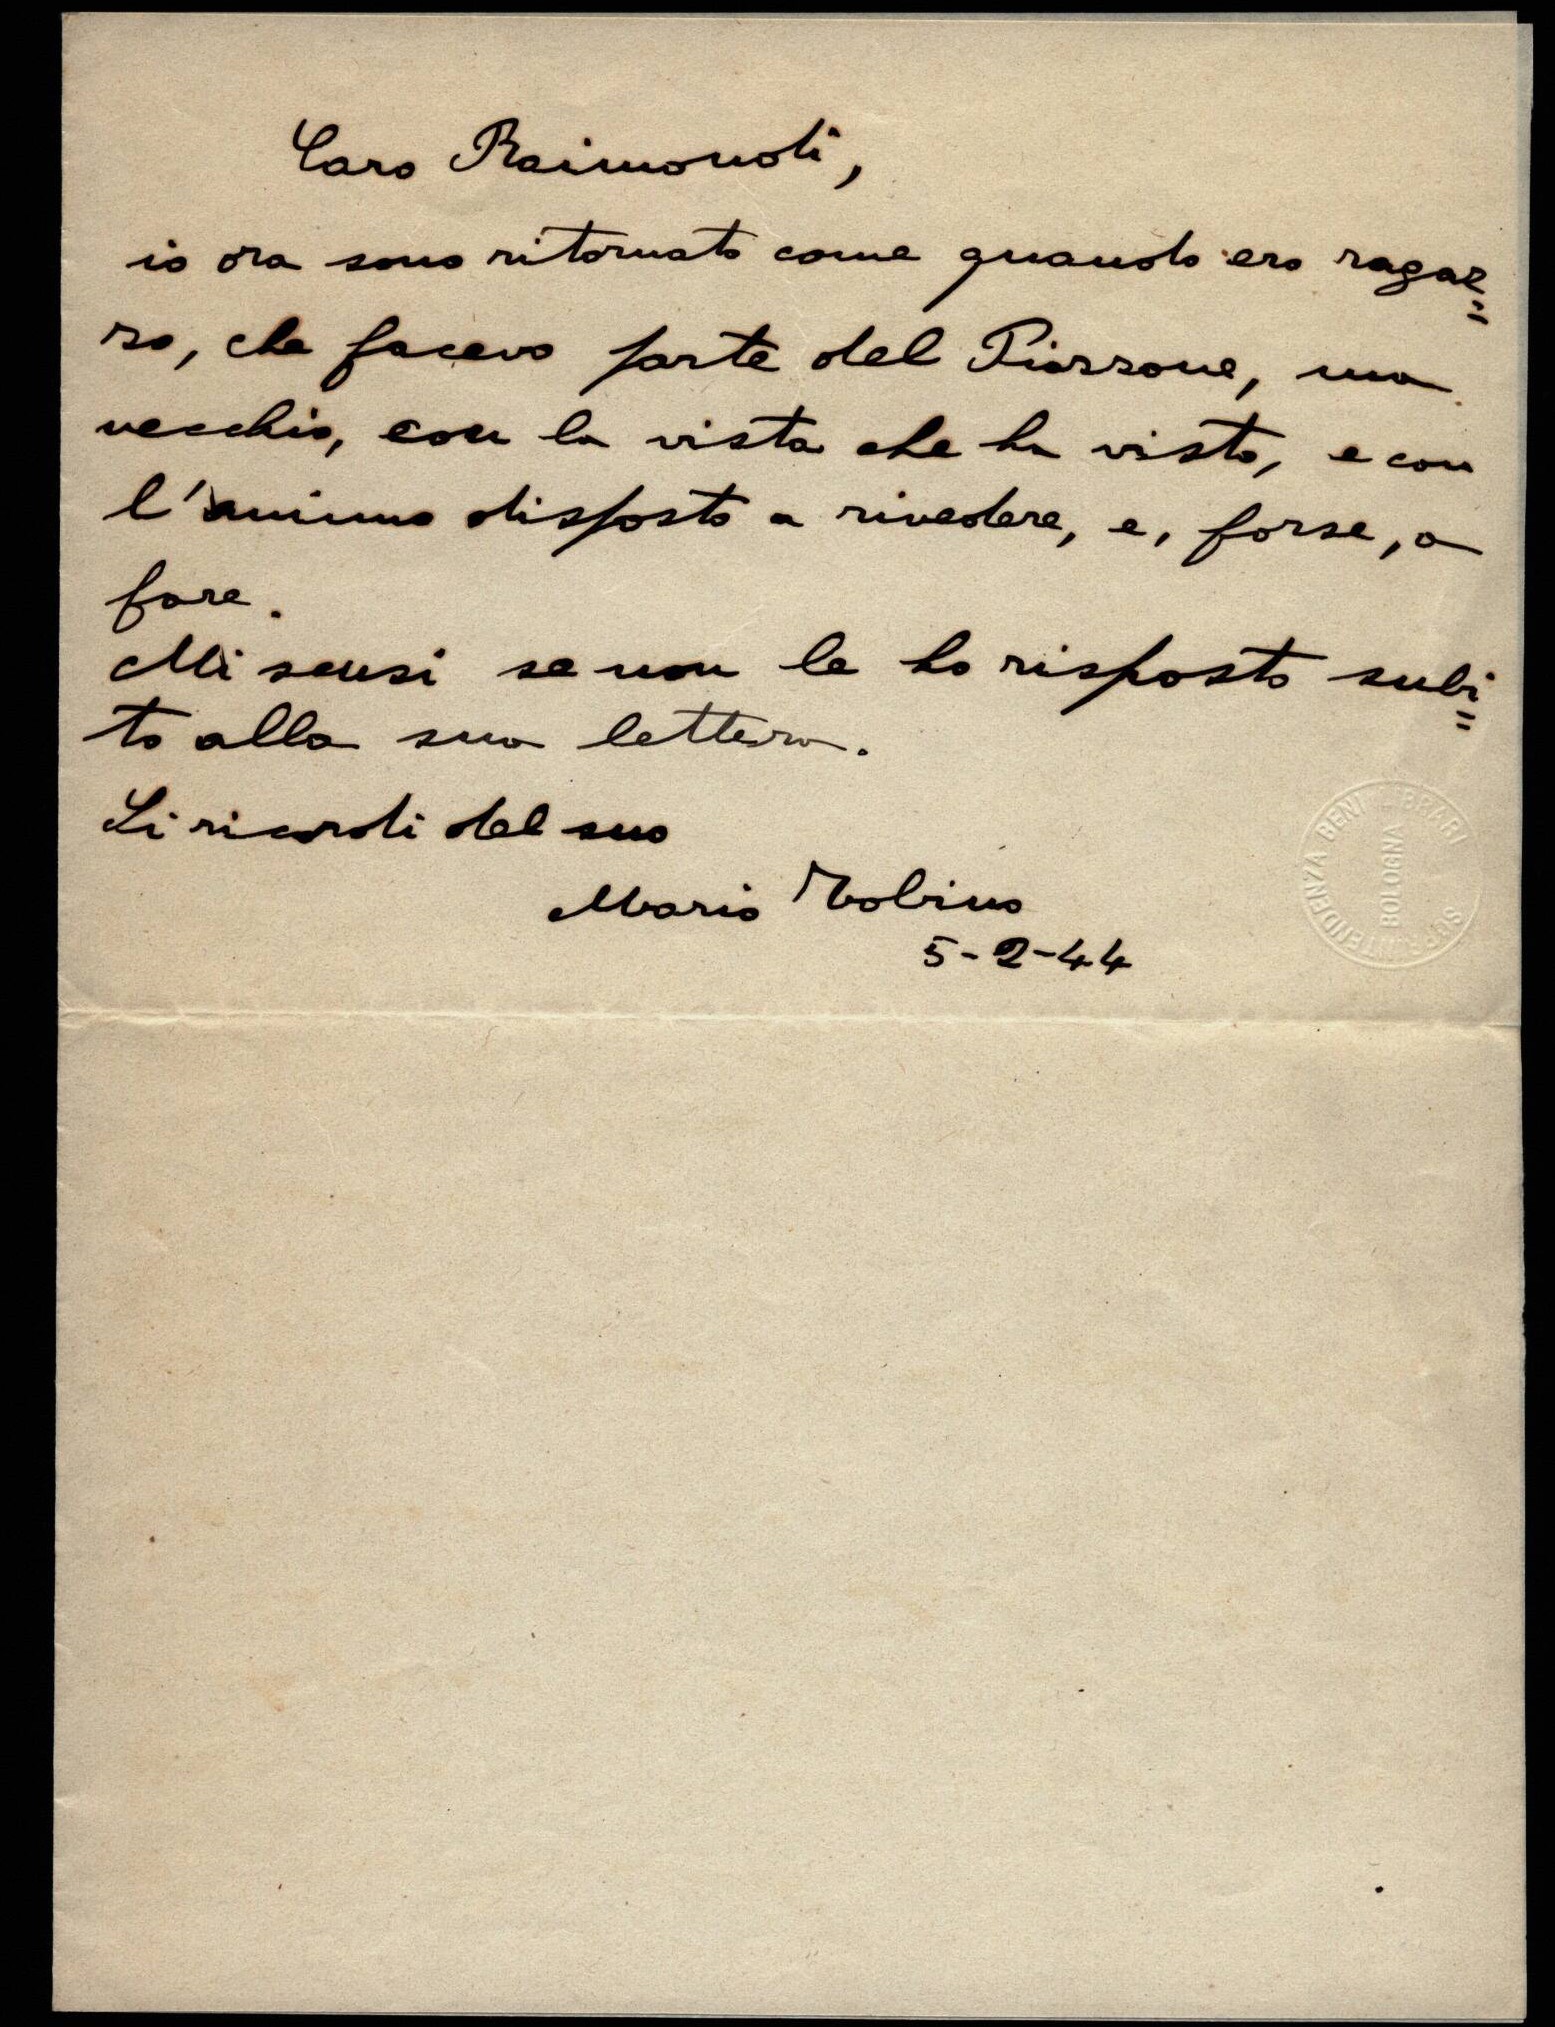 Caro Raimondi,
io ora sono ritornato come quando ero ragaz=
zo, che facevo parte del Piazzone, ma
vecchio, con la vista che ha visto, e con
l'animo disposto a rivedere, e, forse, a
fare.
Mi scusi se non le ho risposto subi=
to alla sua lettera.
Si ricordi del suo
Mario Tobino
5-2-44
SOPRINTENDENZA BENI LIBRARI
BOLOGNA